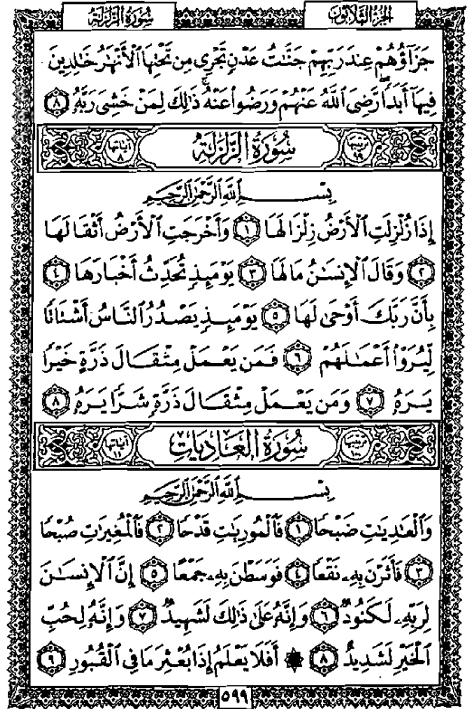 الجزء الثلاثون سورة الزلزلة
جَزَآؤُهُمْ عِندَ رَبِّهِمْ جَنَّٰتُ عَدْنٍ تَجْرِى مِن تَحْتِهَا ٱلْأَنْهَٰرُ خَٰلِدِينَ
فِيهَآ أَبَدًا رَّضِىَ ٱللَّهُ عَنْهُمْ وَرَضُوا۟ عَنْهُ ذَٰلِكَ لِمَنْ خَشِىَ رَبَّهُۥ ٨
ترتيبها ٩٩ سُورَةُ الزَّلْزَلَةِ آياتها ٨
بِسْمِ ٱللَّهِ ٱلرَّحْمَٰنِ ٱلرَّحِيمِ
إِذَا زُلْزِلَتِ ٱلْأَرْضُ زِلْزَالَهَا ١ وَأَخْرَجَتِ ٱلْأَرْضُ أَثْقَالَهَا
٢ وَقَالَ ٱلْإِنسَٰنُ مَا لَهَا ٣ يَوْمَئِذٍ تُحَدِّثُ أَخْبَارَهَا ٤
بِأَنَّ رَبَّكَ أَوْحَىٰ لَهَا ٥ يَوْمَئِذٍ يَصْدُرُ ٱلنَّاسُ أَشْتَاتًا
لِّيُرَوْا۟ أَعْمَٰلَهُمْ ٦ فَمَن يَعْمَلْ مِثْقَالَ ذَرَّةٍ خَيْرًا
يَرَهُۥ ٧ وَمَن يَعْمَلْ مِثْقَالَ ذَرَّةٍ شَرًّا يَرَهُۥ ٨
ترتيبها سُورَةُ العَادِيَاتِ آياتها
بِسْمِ ٱللَّهِ ٱلرَّحْمَٰنِ ٱلرَّحِيمِ
وَٱلْعَٰدِيَٰتِ ضَبْحًا ١ فَٱلْمُورِيَٰتِ قَدْحًا ٢ فَٱلْمُغِيرَٰتِ صُبْحًا
٣ فَأَثَرْنَ بِهِۦ نَقْعًا ٤ فَوَسَطْنَ بِهِۦ جَمْعًا ٥ إِنَّ ٱلْإِنسَٰنَ
لِرَبِّهِۦ لَكَنُودٌ ٦ وَإِنَّهُۥ عَلَىٰ ذَٰلِكَ لَشَهِيدٌ ٧ وَإِنَّهُۥ لِحُبِّ
ٱلْخَيْرِ لَشَدِيدٌ ٨ ۞ أَفَلَا يَعْلَمُ إِذَا بُعْثِرَ مَا فِى ٱلْقُبُورِ ٩
٥٩٩